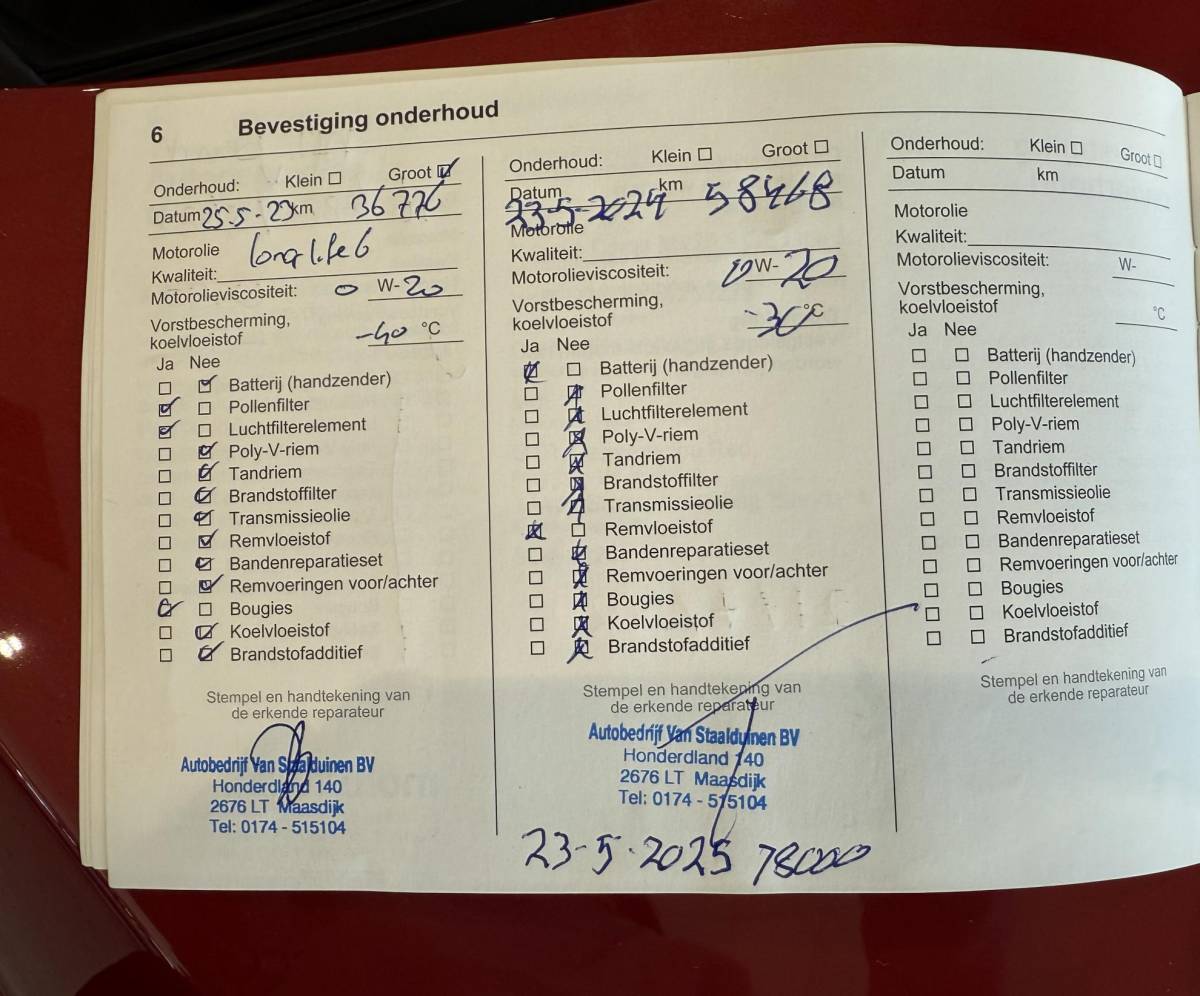 6 Bevestiging onderhoud
Onderhoud: Klein ☐ Groot ☑
Datum 25.5-23 km 36776
Motorolie
Kwaliteit: long life 6
Motorolieviscositeit: 0 W-20
Vorstbescherming,
koelvloeistof -40 °C
Ja Nee
☐ ☑ Batterij (handzender)
☑ ☐ Pollenfilter
☑ ☐ Luchtfilterelement
☐ ☑ Poly-V-riem
☐ ☑ Tandriem
☐ ☑ Brandstoffilter
☐ ☑ Transmissieolie
☐ ☑ Remvloeistof
☐ ☑ Bandenreparatieset
☐ ☑ Remvoeringen voor/achter
☑ ☐ Bougies
☐ ☑ Koelvloeistof
☐ ☑ Brandstofadditief
Stempel en handtekening van
de erkende reparateur
Autobedrijf Van Staalduinen BV
Honderdland 140
2676 LT Maasdijk
Tel: 0174 - 515104
Onderhoud: Klein ☐ Groot ☐
Datum km
23-5-2024 58468
Motorolie
Kwaliteit:
Motorolieviscositeit: 0W-20
Vorstbescherming,
koelvloeistof -30°C
Ja Nee
☑ ☐ Batterij (handzender)
☐ ☑ Pollenfilter
☐ ☑ Luchtfilterelement
☐ ☑ Poly-V-riem
☐ ☑ Tandriem
☐ ☑ Brandstoffilter
☐ ☑ Transmissieolie
☑ ☐ Remvloeistof
☐ ☑ Bandenreparatieset
☐ ☑ Remvoeringen voor/achter
☐ ☑ Bougies
☐ ☑ Koelvloeistof
☐ ☑ Brandstofadditief
Stempel en handtekening van
de erkende reparateur
Autobedrijf Van Staalduinen BV
Honderdland 140
2676 LT Maasdijk
Tel: 0174 - 515104
23-5-2025 78000
Onderhoud: Klein ☐ Groot ☐
Datum km
Motorolie
Kwaliteit:
Motorolieviscositeit: W-
Vorstbescherming,
koelvloeistof °C
Ja Nee
☐ ☐ Batterij (handzender)
☐ ☐ Pollenfilter
☐ ☐ Luchtfilterelement
☐ ☐ Poly-V-riem
☐ ☐ Tandriem
☐ ☐ Brandstoffilter
☐ ☐ Transmissieolie
☐ ☐ Remvloeistof
☐ ☐ Bandenreparatieset
☐ ☐ Remvoeringen voor/achter
☐ ☐ Bougies
☐ ☐ Koelvloeistof
☐ ☐ Brandstofadditief
Stempel en handtekening van
de erkende reparateur